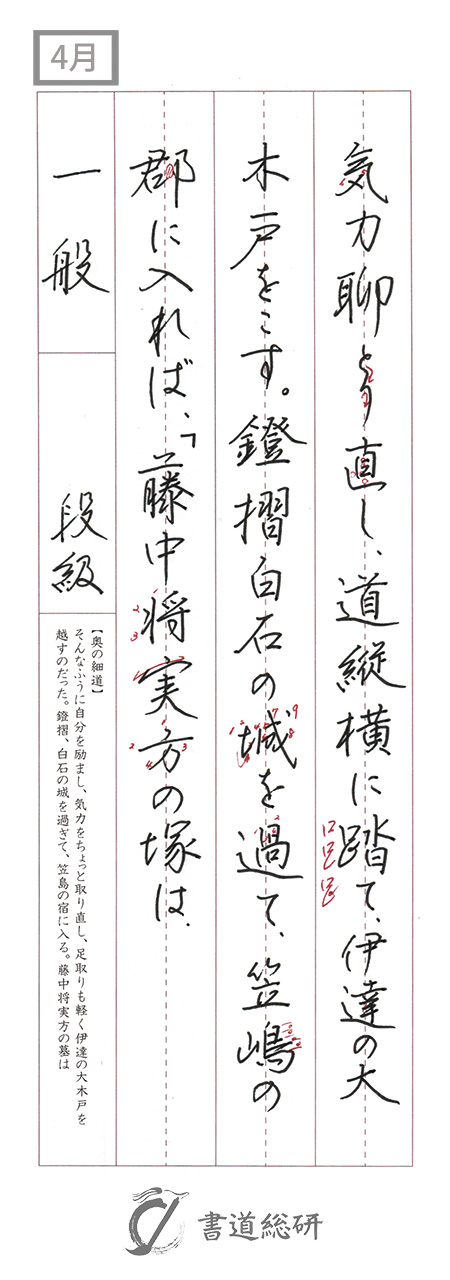 4月
気力聊とり直し、道縦横に踏て、伊達の大
木戸をこす。鐙摺白石の城を過て、笠嶋の
郡に入れば、「藤中将実方の塚は
一般
段級
【奥の細道】
そんなふうに自分を励まし、気力をちょっと取り直し、足取りも軽く伊達の大木戸を
越すのだった。鐙摺、白石の城を過ぎて、笠島の宿に入る。藤中将実方の墓は
書道総研